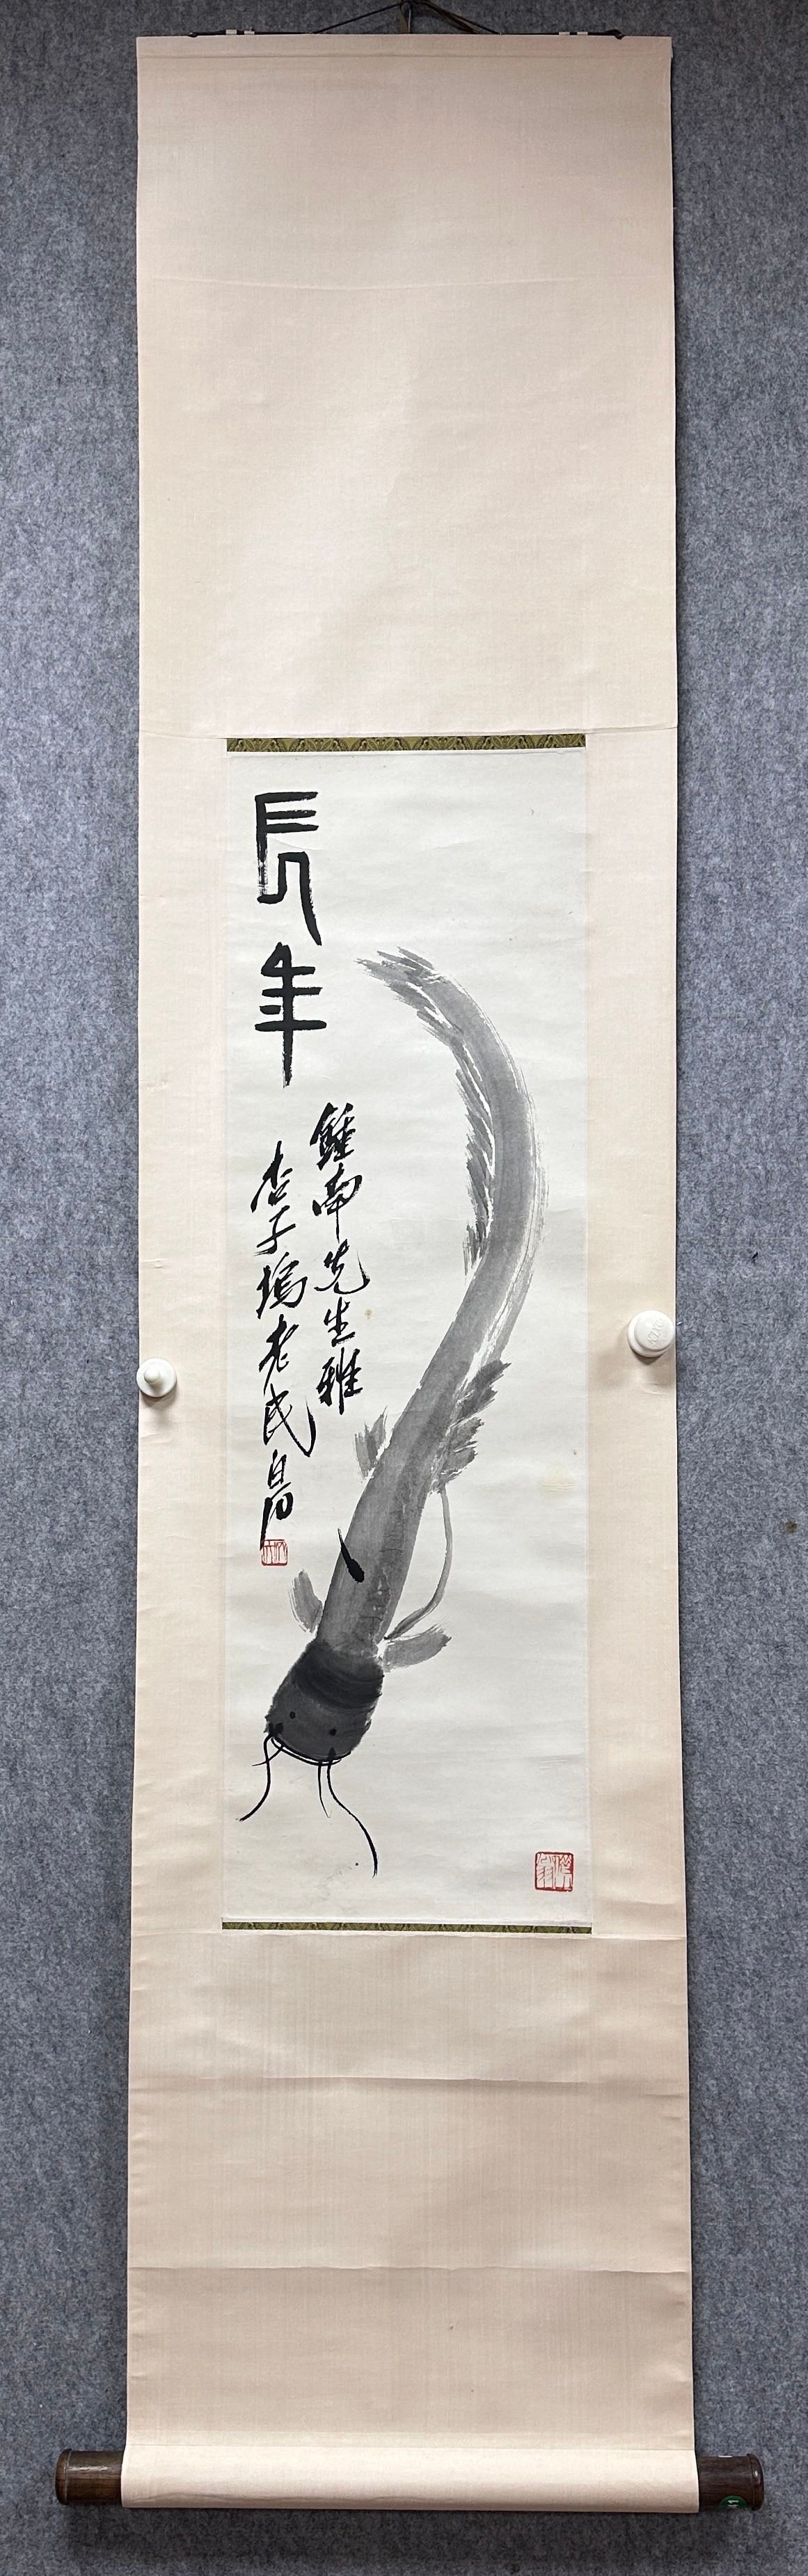 長年
鍾南先生雅
杏子塢老民白石